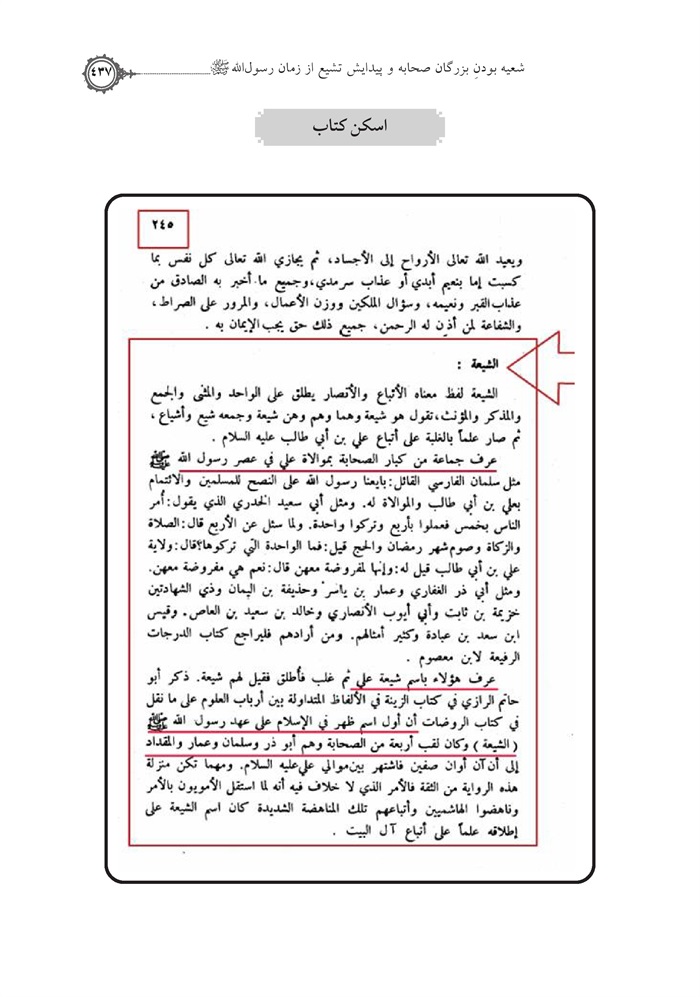 شعیه بودنِ بزرگان صحابه و پیدایش تشیع از زمان رسول‌الله ﷺ
۴۳۷
اسکن کتاب
٢٤٥
ويعيد الله تعالى الأرواح إلى الأجساد، ثم يجازي الله تعالى كل نفس بما
كسبت إما بنعيم أبدي أو عذاب سرمدي، وجميع ما أخبر به الصادق من
عذاب القبر ونعيمه، وسؤال الملكين ووزن الأعمال، والمرور على الصراط،
والشفاعة لمن أذن له الرحمن، جميع ذلك حق يجب الإيمان به .
الشيعة :
الشيعة لفظ معناه الأتباع والأنصار يطلق على الواحد والمثنى والجمع
والمذكر والمؤنث، تقول هو شيعة وهما وهم وهن شيعة وجمعه شيع وأشياع،
ثم صار علماً بالغلبة على أتباع علي بن أبي طالب عليه السلام .
عرف جماعة من كبار الصحابة بموالاة علي في عصر رسول الله ﷺ
مثل سلمان الفارسي القائل: بايعنا رسول الله على النصح للمسلمين والائتمام
بعلي بن أبي طالب والموالاة له. ومثل أبي سعيد الخدري الذي يقول: أُمر
الناس بخمس فعملوا بأربع وتركوا واحدة. ولما سئل عن الأربع قال: الصلاة
والزكاة وصوم شهر رمضان والحج قيل: فما الواحدة التي تركوها؟ قال: ولاية
علي بن أبي طالب قيل له: وإنها لمفروضة معهن قال: نعم هي مفروضة معهن.
ومثل أبي ذر الغفاري وعمار بن ياسر وحذيفة بن اليمان وذي الشهادتين
خزيمة بن ثابت وأبي أيوب الأنصاري وخالد بن سعيد بن العاص. وقيس
ابن سعد بن عبادة وكثير أمثالهم. ومن أرادهم فليراجع كتاب الدرجات
الرفيعة لابن معصوم .
عرف هؤلاء باسم شيعة علي ثم غلب فأطلق فقيل لهم شيعة. ذكر أبو
حاتم الرازي في كتاب الزينة في الألفاظ المتداولة بين أرباب العلوم على ما نقل
في كتاب الروضات أن أول اسم ظهر في الإسلام على عهد رسول الله ﷺ
( الشيعة ) وكان لقب أربعة من الصحابة وهم أبو ذر وسلمان وعمار والمقداد
إلى أن آن أوان صفين فاشتهر بين موالي علي عليه السلام. ومهما تكن منزلة
هذه الرواية من الثقة فالأمر الذي لا خلاف فيه أنه لما استقل الأمويون بالأمر
وناهضوا الهاشميين وأتباعهم تلك المناهضة الشديدة كان اسم الشيعة على
إطلاقه علماً على أتباع آل البيت .